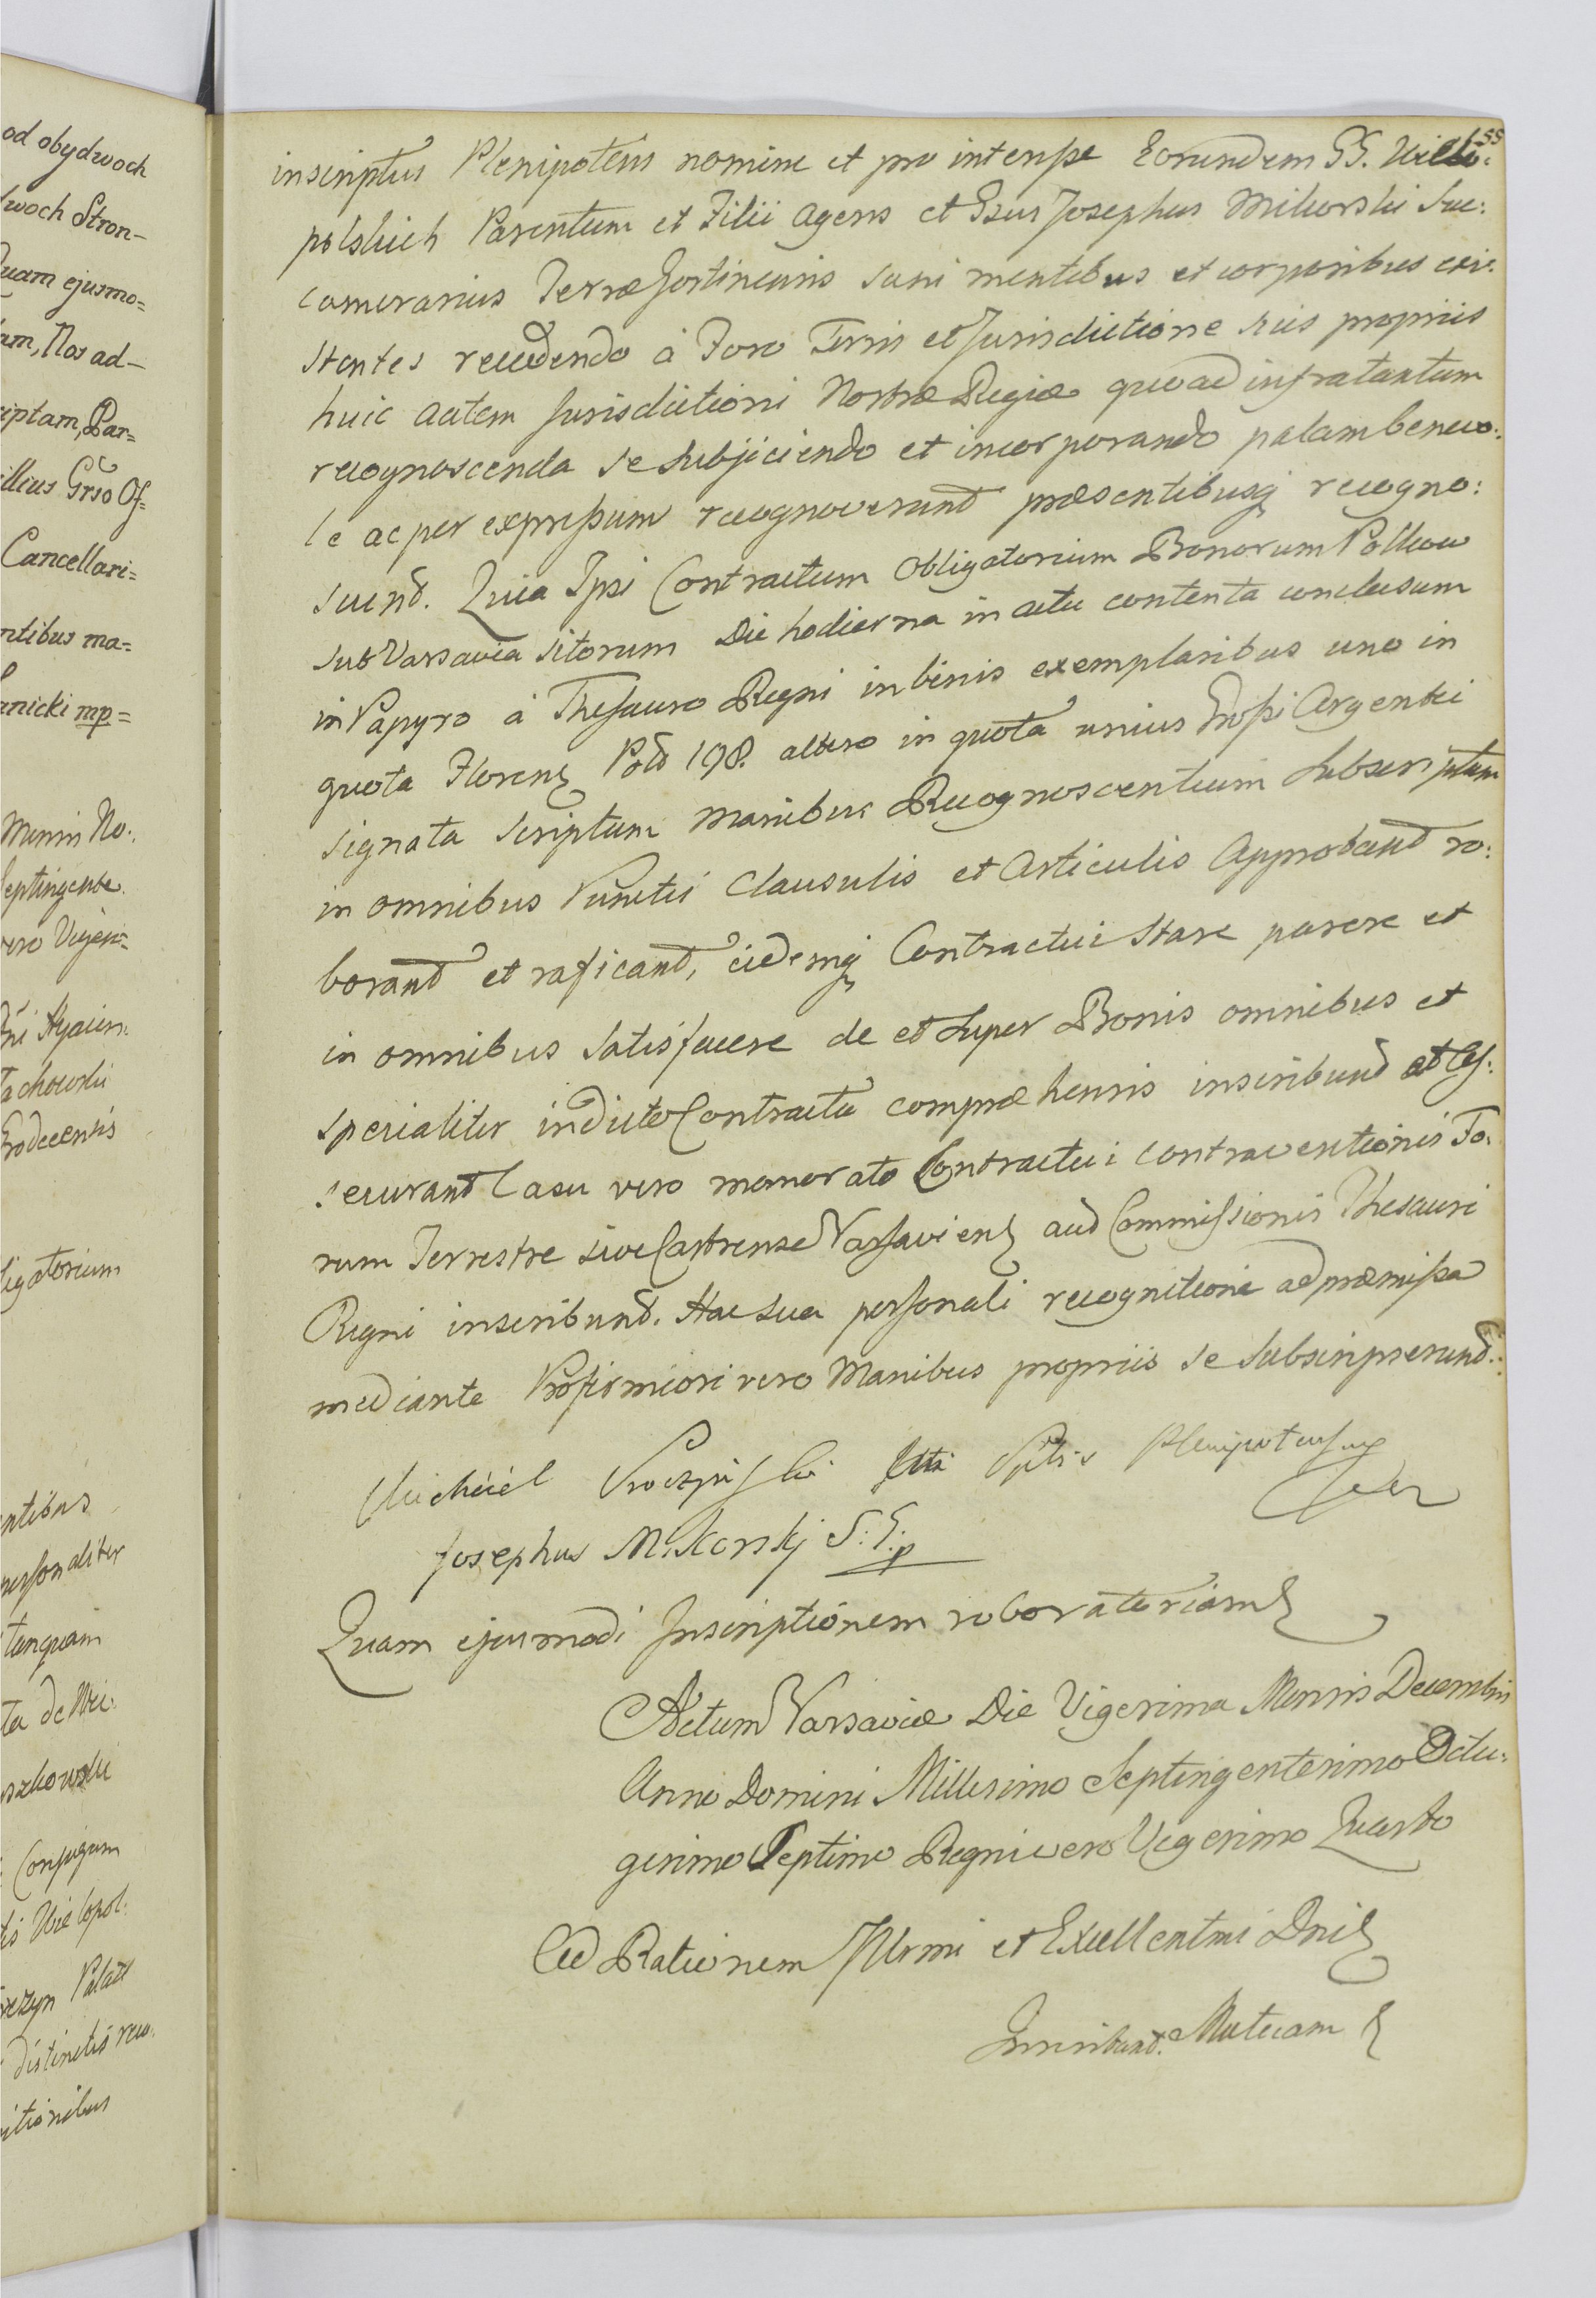 od obydwoch
dwoch Stron-
Quam ejusmo=
am, Nos ad-
riptam, Par=
illius Grso Of=
Cancellari=
ntibus ma=
anicki mp=
Mensis No:
Septingente.
vero Vigesi=
Dni Hyacin:
Grodecensis
ligatorium
entibus
personaliter
tanquam
ta de Wie.
szkowski
Conjugum
is Wielopol:
Palatt
distinctis reco.
itionibus
inscriptus Plenipotens nomine et pro interesse Eorundem GG. Wielo: ss
polskich Parentum et Filii agens et Gsus Josephus Mikorski Suc:
camerarius Terræ Gostinensis sani mentibus et corporibus exi:
stentes recedendo à Foro Terris et Jurisdictione suis propriis
huic autem Jurisdictioni Nostræ Regiæ quoad infratantum
recognoscenda se subjiciendo et incorporando palam benevo:
le ac per expressum recognoverunt præsentibusq recogno:
scund. Quia Ipsi Contractum Obligatorium Bonorum Polkow
sub Varsavia sitorum Die hodierna in actu contenta conclusum
in Papyro à Thesauro Regni in binis exemplaribus uno in
quota Floren Pold 198. altero in quota unius Grossi Argentei
signata scriptum Manibus Recognoscentium subscriptum
in omnibus Punctis Clausulis et Articulis Approband ro:
borand et raficand, eidemq Contractui stare parere et
in omnibus satisfacere de et super Bonis omnibus et
specialiter in dicto Contractu compræhensis inscribund et As:
securand Casu vero memorato Contractui contraventionis Fo:
rum Terrestre sive Castrense Varsavien aud Commissionis Thesauri
Regni inscribund. Hac sua personali recognitione ad præmissa
mediante Pro firmiori vero Manibus propriis se subscripserund.
Michael Plenipotens mp
Josephus Mikorskj S: G: p
Quam ejusmodi Inscriptionem roboratoriam
Actum Varsaviæ Die Vigesima Mensis Decembris
Anno Domini Millesimo Septingentesimo Octu:
gesimo Septimo Regni vero Vigesimo Quarto
Ad Rationem Illrmi et Excellentmi Dni
Inscriband. Mutuam